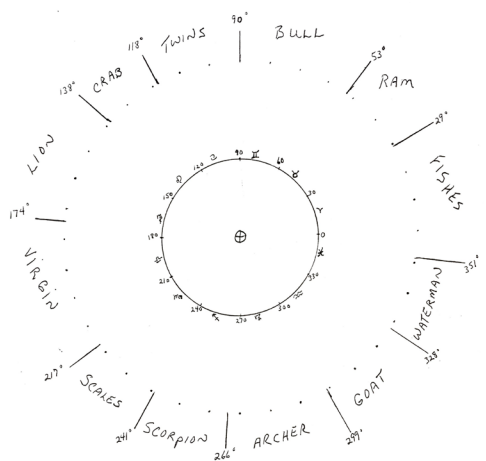 90°
BULL
53°
RAM
29°
FISHES
351°
WATERMAN
328°
GOAT
299°
ARCHER
266°
SCORPION
241°
SCALES
217°
VIRGIN
174°
LION
138°
CRAB
118°
TWINS
90
♊
60
♉
30
♈
0
♓
330
♒
300
♑
270
♐
240
♏
210
♎
180
♍
150
♌
120
♋